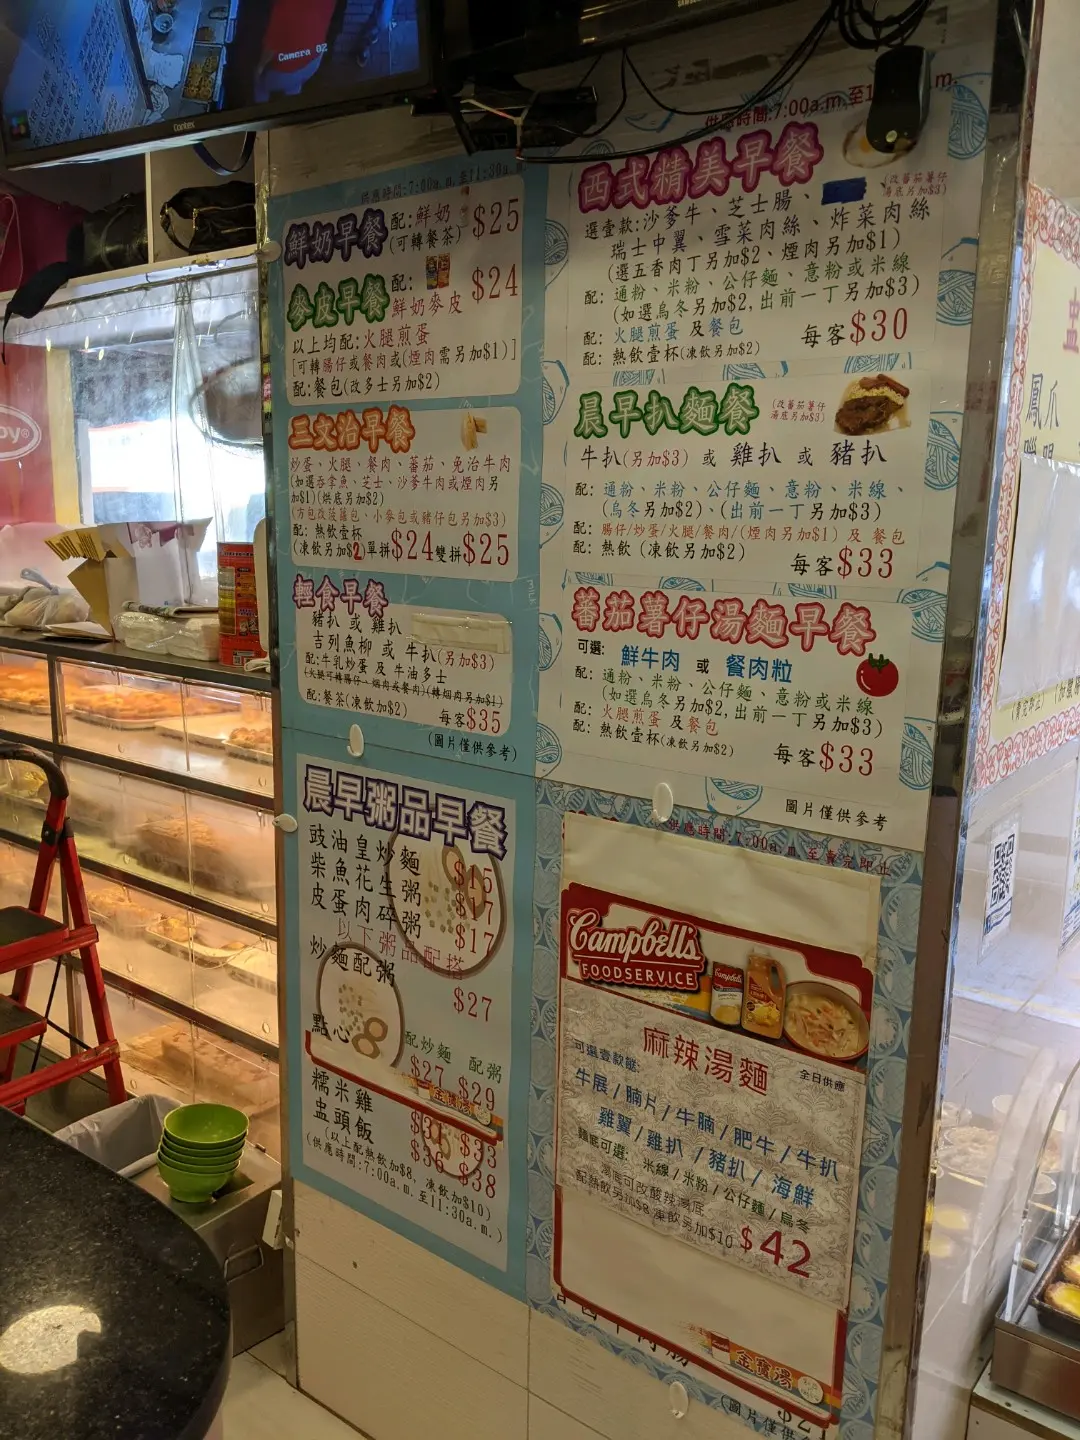 Camera 02
Contex
SAMSUNG
供應時間:7:00a.m.至11:30a.m.
鮮奶早餐
配:鮮奶
(可轉餐茶)
$25
麥皮早餐
配:
鮮奶麥皮
$24
以上均配:火腿煎蛋
[可轉腸仔或餐肉或(煙肉需另加$1)]
配:餐包(改多士另加$2)
三文治早餐
炒蛋、火腿、餐肉、蕃茄、免治牛肉
(如選吞拿魚、芝士、沙爹牛肉或煙肉另
加$1)(烘底另加$2)
(方包改菠蘿包、小麥包或豬仔包另加$3)
配:熱飲壹杯
(凍飲另加$2)單拼$24雙拼$25
輕食早餐
豬扒 或 雞扒
吉列魚柳 或 牛扒(另加$3)
配:牛乳炒蛋 及 牛油多士
(火腿可轉腸仔、烟肉或餐肉)(轉烟肉另加$1)
配:餐茶(凍飲加$2)
每客$35
(圖片僅供參考)
晨早粥品早餐
豉油皇炒麵 $15
柴魚花生粥 $17
皮蛋肉碎粥 $17
以下粥品配搭
炒麵配粥 $27
配炒麵 配粥
點心 $27 $29
糯米雞 $31 $33
盅頭飯 $36 $38
(以上配熱飲加$8, 凍飲加$10)
(供應時間:7:00a.m.至11:30a.m.)
供應時間:7:00a.m.至1
.m.
西式精美早餐
(改蕃茄薯仔
湯底另加$3)
選壹款:沙爹牛、芝士腸、
瑞士中翼、雪菜肉絲、炸菜肉絲
(選五香肉丁另加$2,煙肉另加$1)
配:通粉、米粉、公仔麵、意粉或米線
(如選烏冬另加$2,出前一丁另加$3)
配:火腿煎蛋 及 餐包
配:熱飲壹杯(凍飲另加$2)
每客$30
晨早扒麵餐
(改蕃茄薯仔
湯底另加$3)
牛扒(另加$3) 或 雞扒 或 豬扒
配:通粉、米粉、公仔麵、意粉、米線、
(烏冬另加$2)、(出前一丁另加$3)
配:腸仔/炒蛋/火腿/餐肉/(煙肉另加$1) 及 餐包
配:熱飲 (凍飲另加$2)
每客$33
蕃茄薯仔湯麵早餐
可選: 鮮牛肉 或 餐肉粒
配:通粉、米粉、公仔麵、意粉或米線
(如選烏冬另加$2,出前一丁另加$3)
配:火腿煎蛋 及 餐包
配:熱飲壹杯(凍飲另加$2)
每客$33
圖片僅供參考
供應時間:7:00a.m.至賣完即止
Campbell's
FOODSERVICE
麻辣湯麵
全日供應
可選壹款餸:
牛展/腩片/牛腩/肥牛/牛扒
雞翼/雞扒/豬扒/海鮮
麵底可選:米線/米粉/公仔麵/烏冬
湯底可改酸辣湯底
配熱飲另加$8 凍飲另加$10
$42
金寶湯
(圖片僅供
$21
鳳爪